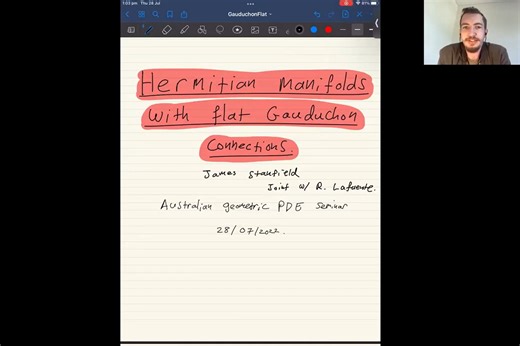 1:03 pm Thu 24 Jul
GauduchonFlat
61%
Hermitian Manifolds
with flat Gauduchon
Connections.
James Stanfield
Joint w/ R. Lafuente.
Australian geometric PDE Seminar
28/07/2022.